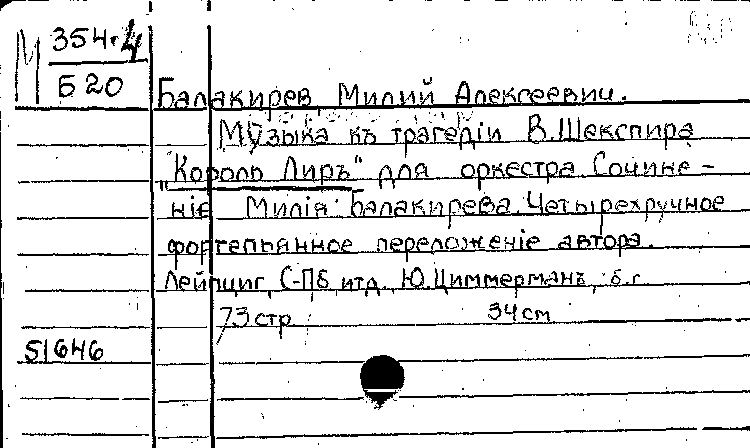 М 354.4
Б 20
Балакирев, Милий Алексеевич.
Музыка къ трагедіи В. Шекспира
„Король Лиръ" для оркестра. Сочине-
ніе Милія Балакирева. Четырехручное
фортепьянное переложеніе автора.
Лейпциг, С-Пб итд. Ю. Циммерманъ, б.г.
73 стр 34 см
51646